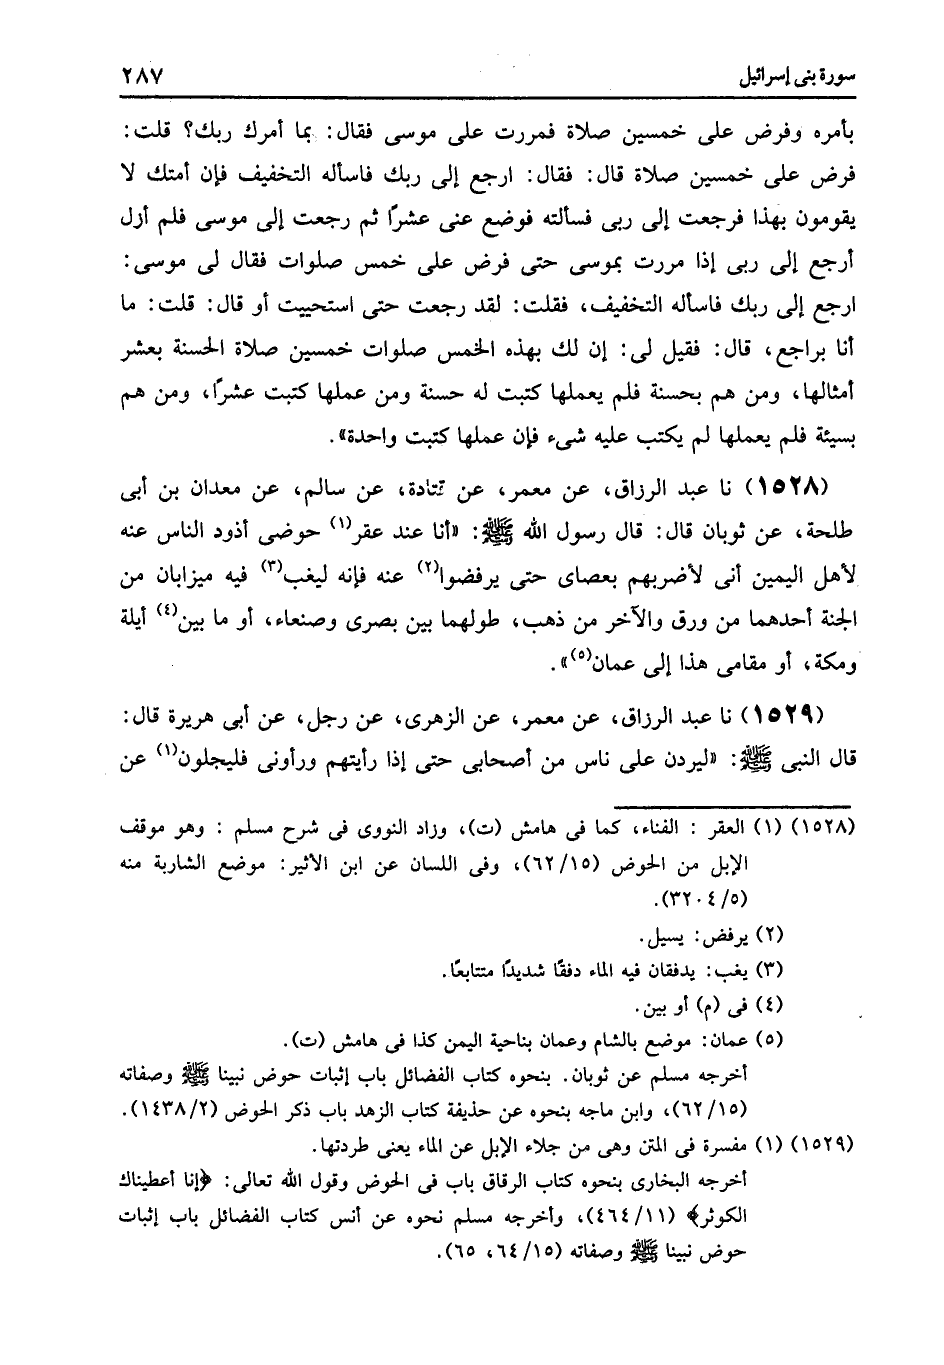 سورة بنى إسرائيل ٢٨٧
بأمره وفرض على خمسين صلاة فمررت على موسى فقال: بما أمرك ربك؟ قلت:
فرض على خمسين صلاة قال: فقال: ارجع إلى ربك فاسأله التخفيف فإن أمتك لا
يقومون بهذا فرجعت إلى ربى فسألته فوضع عنى عشرًا ثم رجعت إلى موسى فلم أزل
أرجع إلى ربى إذا مررت بموسى حتى فرض على خمس صلوات فقال لى موسى:
ارجع إلى ربك فاسأله التخفيف، فقلت: لقد رجعت حتى استحييت أو قال: قلت: ما
أنا براجع، قال: فقيل لى: إن لك بهذه الخمس صلوات خمسين صلاة الحسنة بعشر
أمثالها، ومن هم بحسنة فلم يعملها كتبت له حسنة ومن عملها كتبت عشرًا، ومن هم
بسيئة فلم يعملها لم يكتب عليه شىء فإن عملها كتبت واحدة».
(١٥٢٨) نا عبد الرزاق، عن معمر، عن قتادة، عن سالم، عن معدان بن أبى
طلحة، عن ثوبان قال: قال رسول الله ﷺ: «أنا عند عقر(١) حوضى أذود الناس عنه
لأهل اليمين أنى لأضربهم بعصاى حتى يرفضوا(٢) عنه فإنه ليغب(٣) فيه ميزابان من
الجنة أحدهما من ورق والآخر من ذهب، طولهما بين بصرى وصنعاء، أو ما بين(٤) أيلة
ومكة، أو مقامى هذا إلى عمان(٥)».
(١٥٢٩) نا عبد الرزاق، عن معمر، عن الزهرى، عن رجل، عن أبى هريرة قال:
قال النبى ﷺ: «ليردن على ناس من أصحابى حتى إذا رأيتهم ورأونى فليجلون(١) عن
(١٥٢٨) (١) العقر : الفناء، كما فى هامش (ت)، وزاد النووى فى شرح مسلم : وهو موقف
الإبل من الحوض (٦٢/١٥)، وفى اللسان عن ابن الأثير: موضع الشاربة منه
(٣٢٠٤/٥).
(٢) يرفض: يسيل.
(٣) يغب: يدفقان فيه الماء دفقًا شديدًا متتابعًا.
(٤) فى (م) أو بين.
(٥) عمان: موضع بالشام وعمان بناحية اليمن كذا فى هامش (ت).
أخرجه مسلم عن ثوبان. بنحوه كتاب الفضائل باب إثبات حوض نبينا ﷺ وصفاته
(٦٢/١٥)، وابن ماجه بنحوه عن حذيفة كتاب الزهد باب ذكر الحوض (١٤٣٨/٢).
(١٥٢٩) (١) مفسرة فى المتن وهى من جلاء الإبل عن الماء يعنى طردتها.
أخرجه البخارى بنحوه كتاب الرقاق باب فى الحوض وقول الله تعالى: ﴿إنا أعطيناك
الكوثر﴾ (٤٦٤/١١)، وأخرجه مسلم نحوه عن أنس كتاب الفضائل باب إثبات
حوض نبينا ﷺ وصفاته (٦٤/١٥، ٦٥).